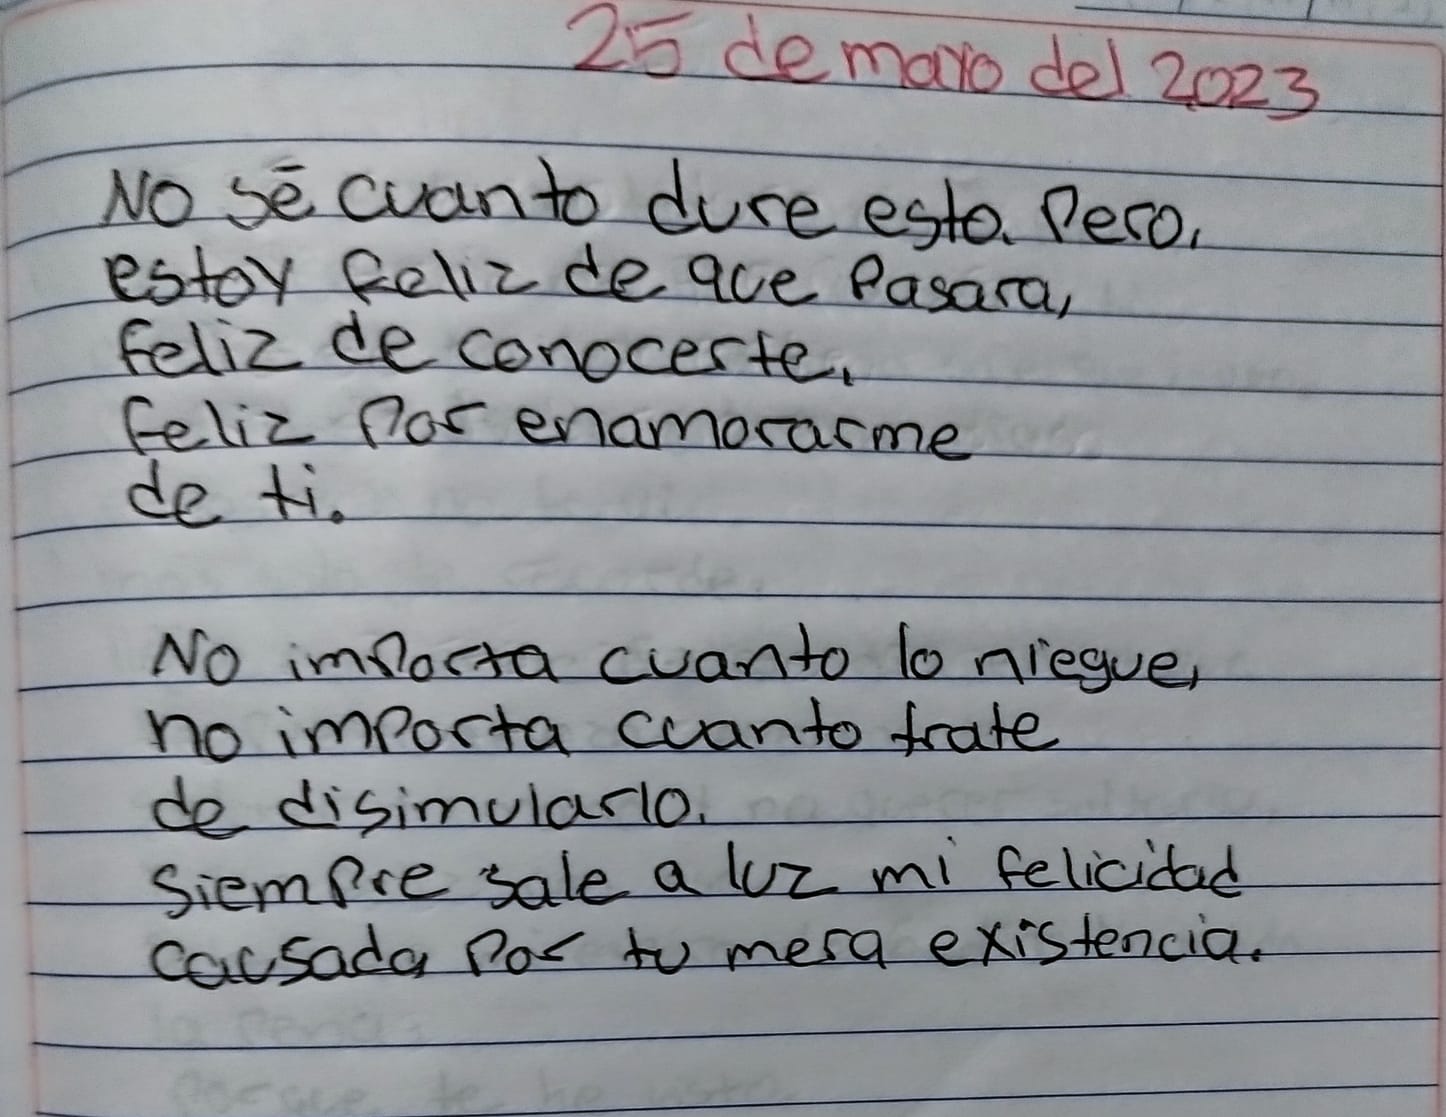 25 de mayo del 2023
No sé cuanto dure esto. Pero,
estoy feliz de que Pasara,
feliz de conocerte,
feliz Por enamorarme
de ti.
No importa cuanto lo niegue,
no importa cuanto trate
de disimularlo.
Siempre sale a luz mi felicidad
causada Por tu mera existencia.